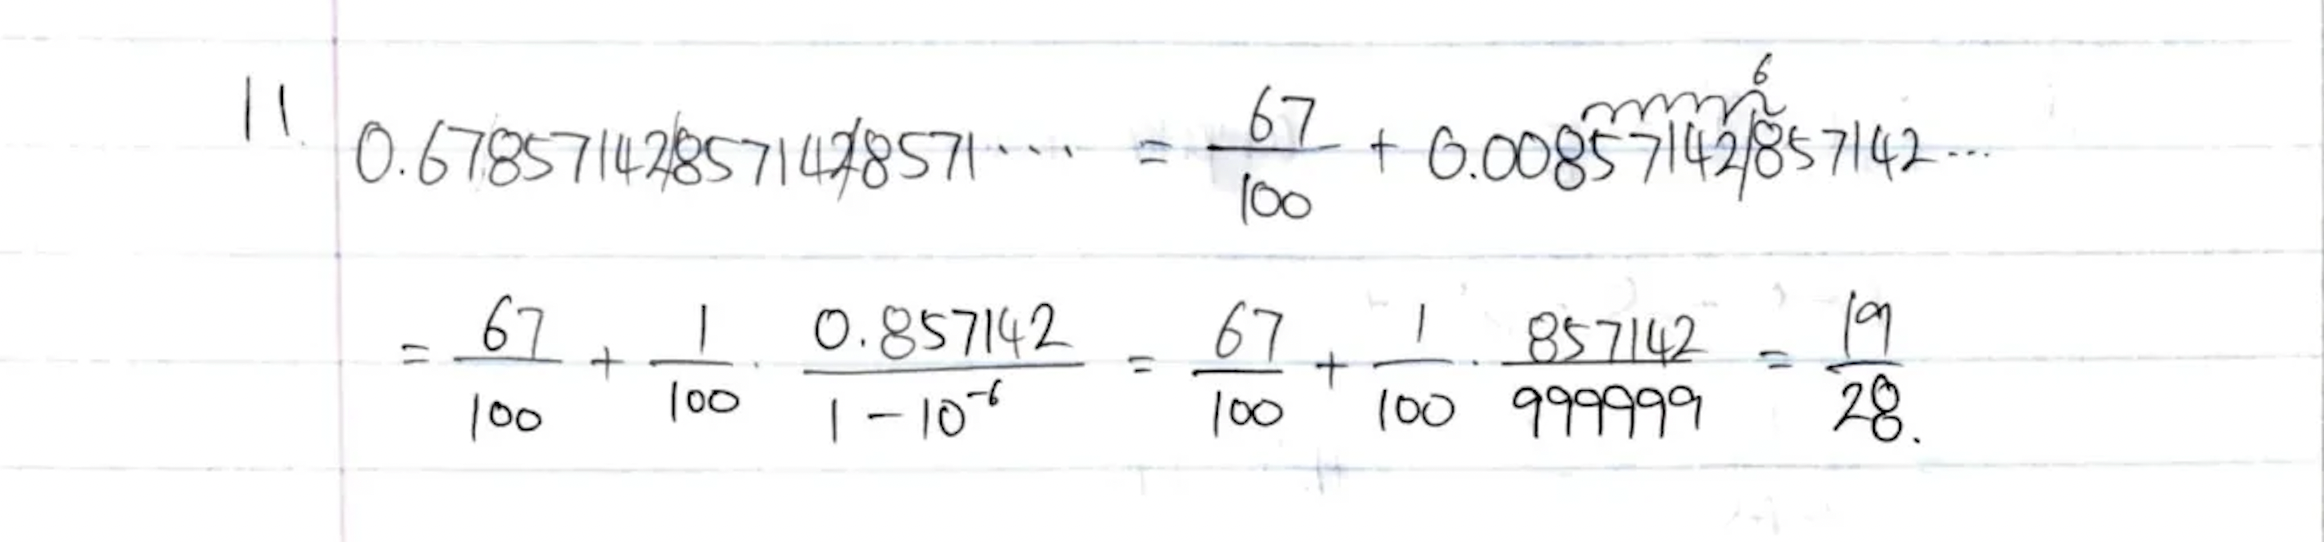 11. 0.678571428571428571... = 67/100 + 0.00857142857142... 6
= 67/100 + 1/100 · 0.857142/(1 − 10^-6) = 67/100 + 1/100 · 857142/999999 = 19/28.